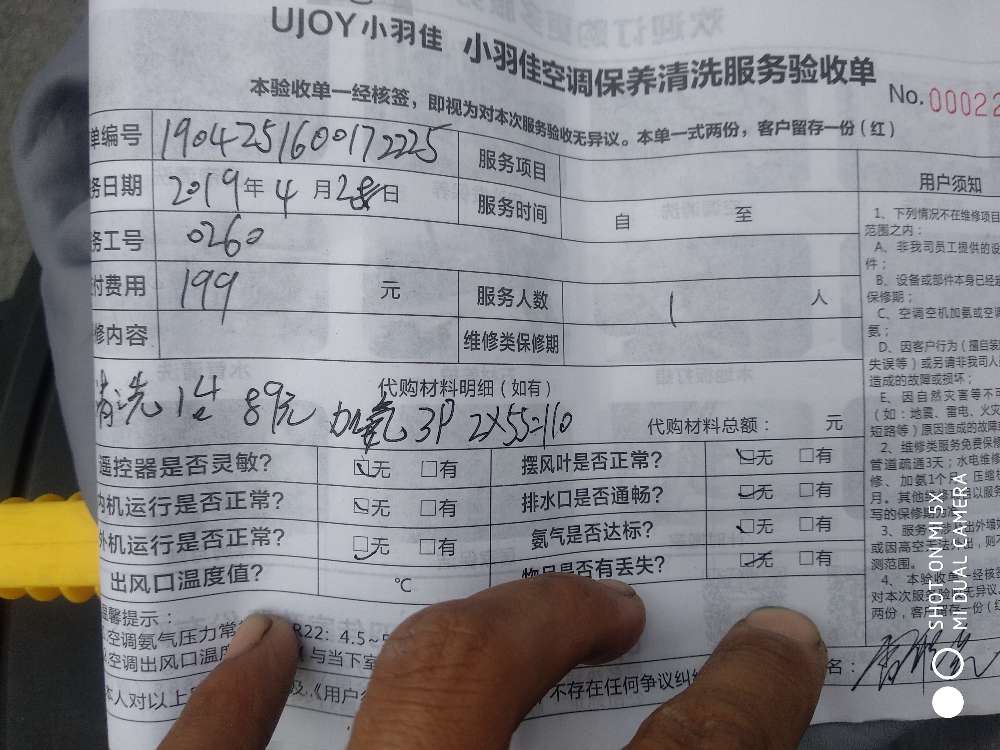 UJOY小羽佳 小羽佳空调保养清洗服务验收单
No.00022
本验收单一经核签，即视为对本次服务验收无异议。本单一式两份，客户留存一份（红）
单编号 1904251600172225 服务项目
务日期 2019年4月28日 服务时间 自 至
务工号 0260
付费用 199 元 服务人数 1 人
修内容 维修类保修期
代购材料明细（如有）
清洗 1台 89元 加氨 3P 2×55=110 代购材料总额： 元
遥控器是否灵敏? 无 有 摆风叶是否正常? 无 有
内机运行是否正常? 无 有 排水口是否通畅? 无 有
外机运行是否正常? 无 有 氨气是否达标? 无 有
出风口温度值? ℃ 物品是否有丢失? 无 有
温馨提示：
空调氨气压力常 R22：4.5~5
空调出风口温度 与当下室
本人对以上 及《用户 不存在任何争议纠 名：
用户须知
1、下列情况不在维修项目
范围之内：
A、非我司员工提供的设
件；
B、设备或部件本身已经超
保修期；
C、空调空机加氨或空调
氨；
D、因客户行为（擅自装
失误等）或另请非我司人员
造成的故障或损坏；
E、因自然灾害等不可
（如：地震、雷电、火灾
短路等）原因造成的故障
2、维修类服务免费保修
管道疏通3天；水电维修
修、加氨1个月，压缩
月。其他 目以服务
写的保修
3、服务 出外墙
或因高空 则不
测范围。
4、本验收单一经核签
对本次服务验 无异议
两份，客户留存一份（红
SHOT ON MI 5X
MI DUAL CAMERA